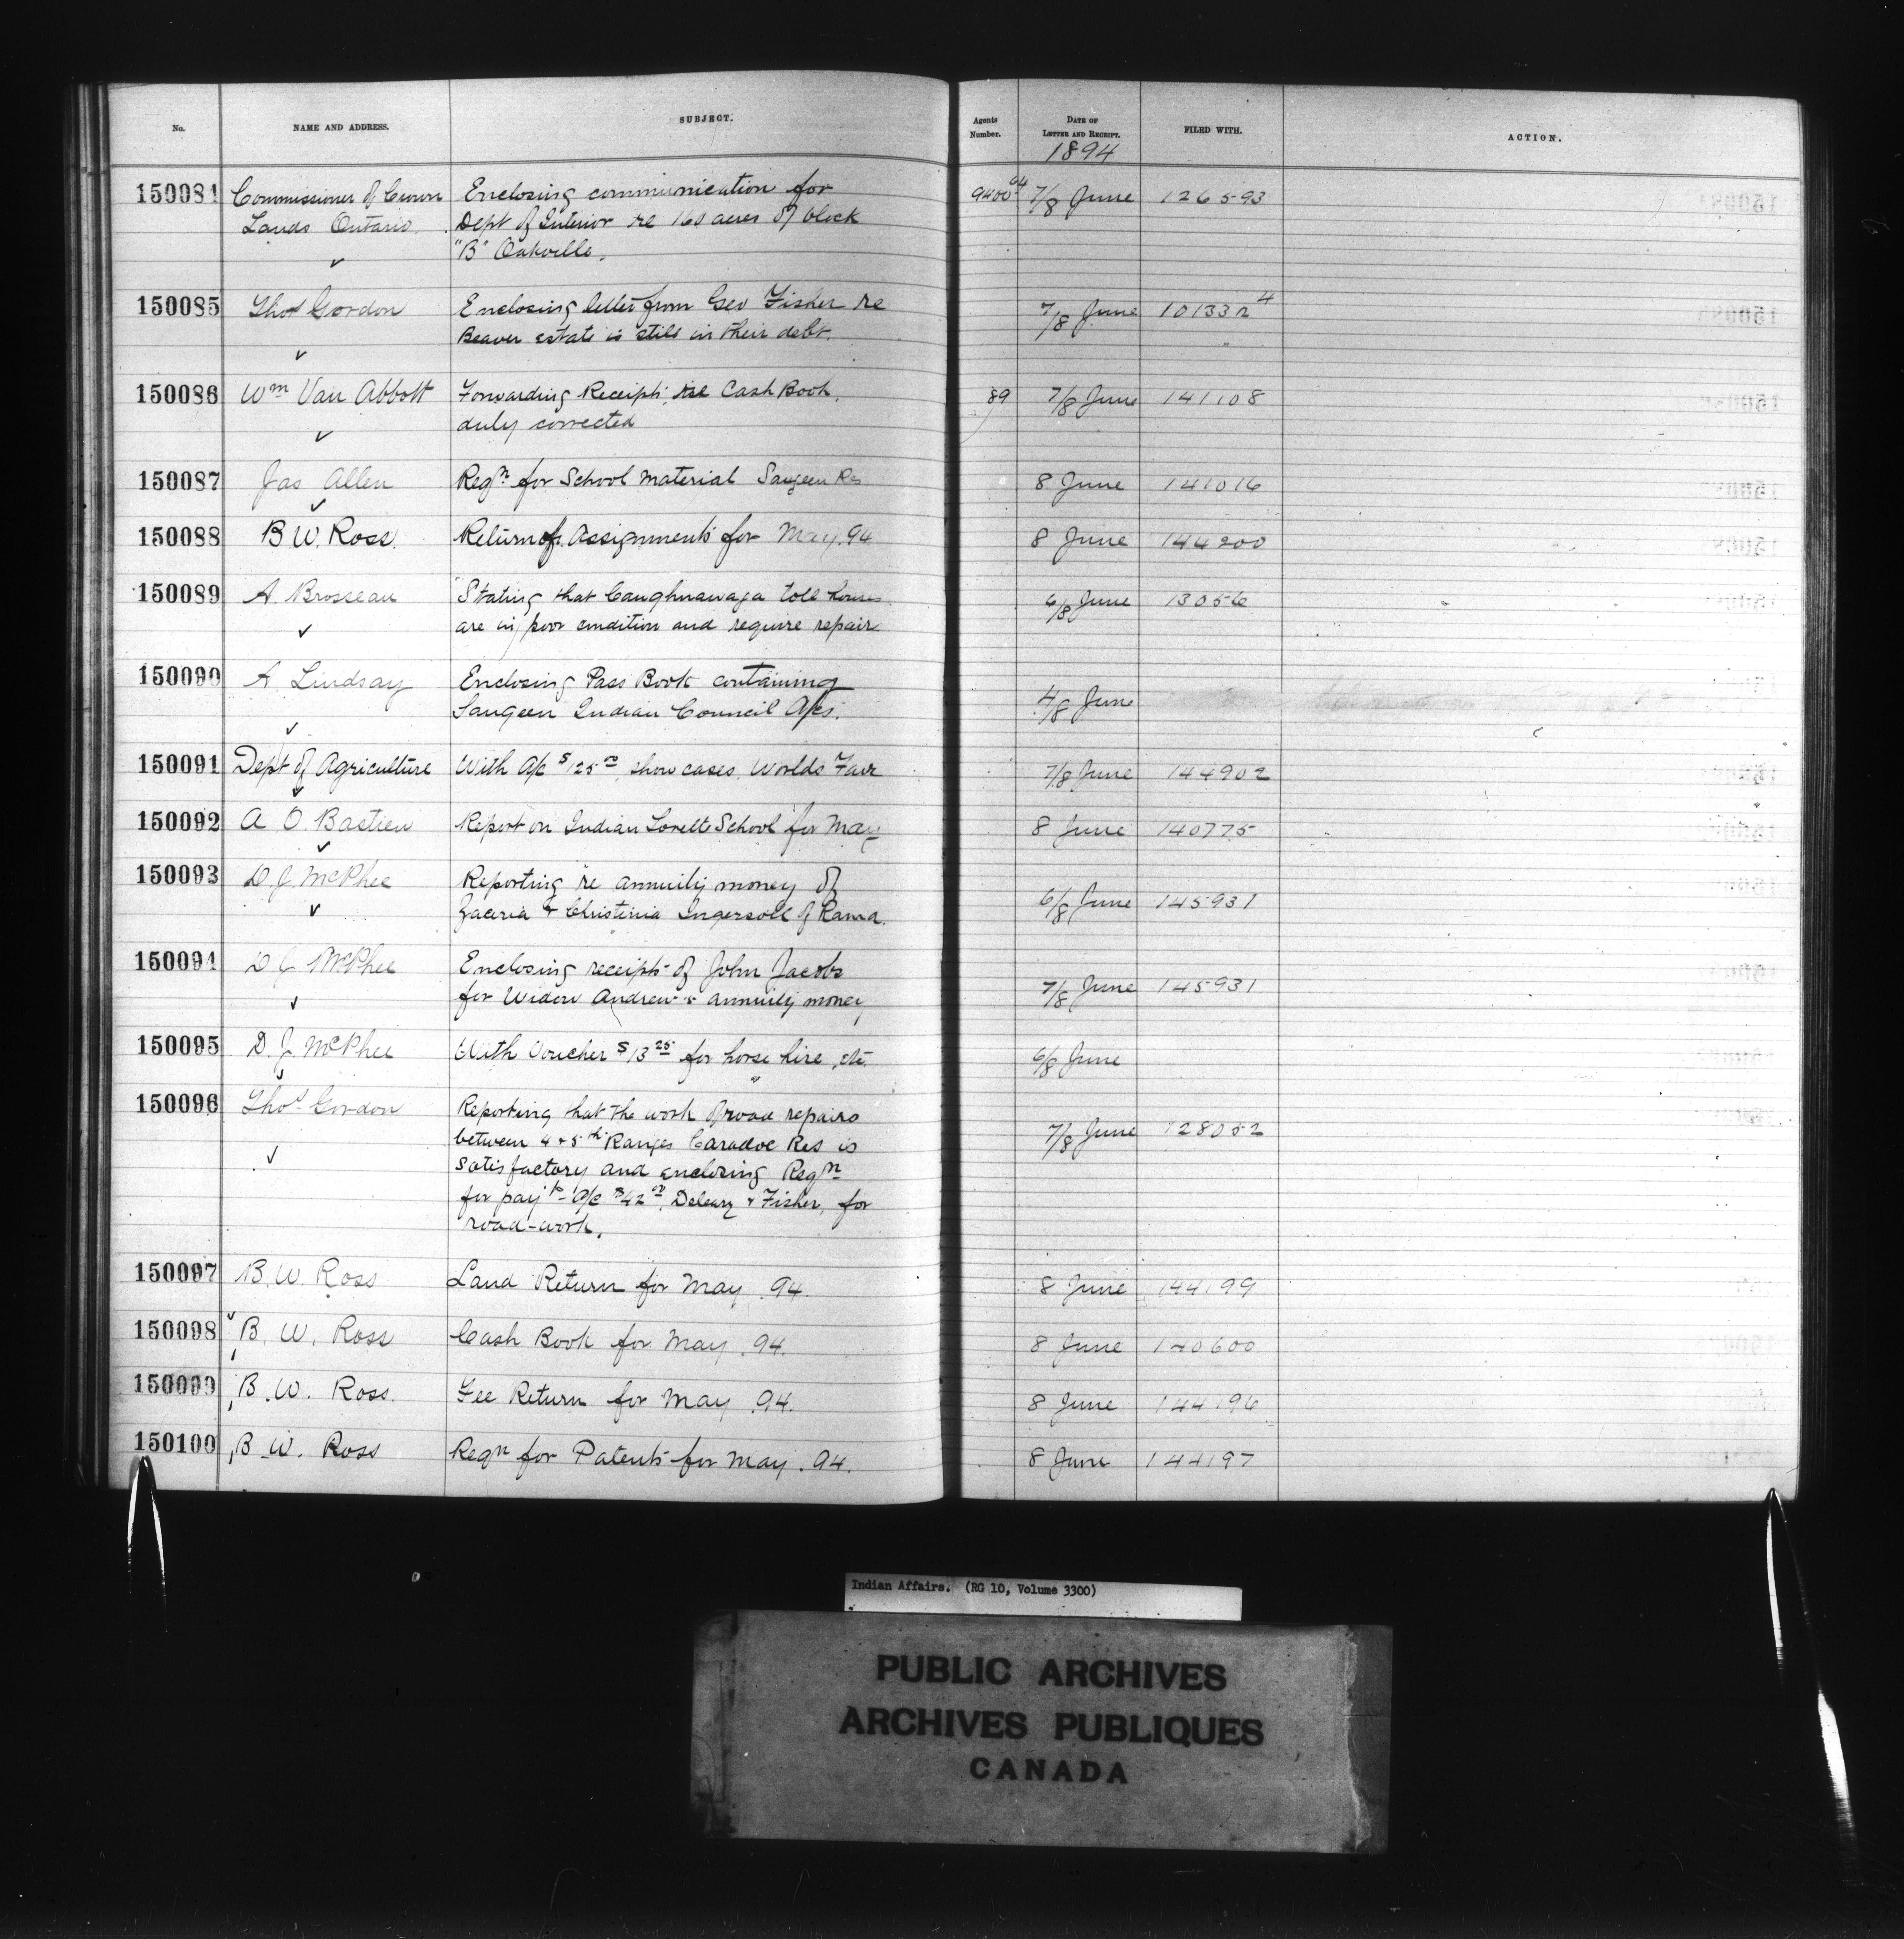 No. NAME AND ADDRESS. SUBJECT. Agents Number. DATE OF LETTER AND RECEIPT. FILED WITH. ACTION.
1894
150084 Commissioner of Crown Enclosing communication for 9400 64 7/8 June 126593
Lands Ontario. Dept of Interior re 160 acres of block
"B" Oakville.
150085 Thos Gordon Enclosing letter from Geo Fisher re 7/8 June 101332 4
Beaver estate is still in their debt.
150086 Wm Van Abbott Forwarding Receipts, re Cash Book, 89 7/8 June 141108
duly corrected
150087 Jas Allen Reqn for School Material Saugeen Res 8 June 141016
150088 B. W. Ross. Return of Assignments for May. 94 8 June 144200
150089 A. Brosseau Stating that Caughnawaga toll houses 6/8 June 13056
are in poor condition and require repair
150090 A Lindsay Enclosing Pass Book containing 4/8 June
Saugeen Indian Council A/cs.
150091 Dept of Agriculture With A/c $125 00, show cases, Worlds Fair 7/8 June 144902
150092 A. O. Bastien Report on Indian Lorette School for May 8 June 140775
150093 D. J. McPhee Reporting re annuity money of 6/8 June 145931
Zaceria & Christinia Ingersoll of Rama.
150094 D J McPhee Enclosing receipt of John Jacobs 7/8 June 145931
for Widow Andrew's annuity money
150095 D. J. McPhee With Voucher $13 25 for horse hire, etc. 6/8 June
150096 Thos Gordon Reporting that the work of road repairs 7/8 June 128052
between 4 & 5th Ranges Caradoc Res is
satisfactory and enclosing Reqn
for payt - A/c $42 00, Deleary & Fisher, for
road-work.
150097 B. W. Ross Land Return for May .94. 8 June 144199
150098 B. W. Ross Cash Book for May .94. 8 June 140600
150099 B. W. Ross. Fee Return for May .94. 8 June 144196
150100 B. W. Ross Reqn for Patents for May .94. 8 June 144197
Indian Affairs. (RG 10, Volume 3300)
PUBLIC ARCHIVES
ARCHIVES PUBLIQUES
CANADA